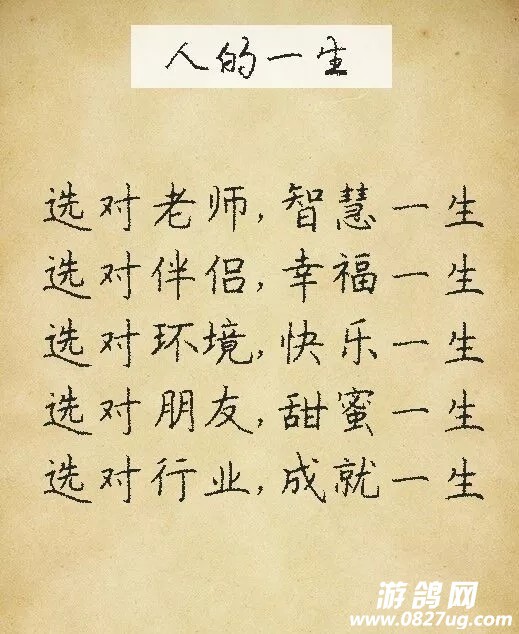 人的一生
选对老师,智慧一生
选对伴侣,幸福一生
选对环境,快乐一生
选对朋友,甜蜜一生
选对行业,成就一生
游鸽网
www.0827ug.com